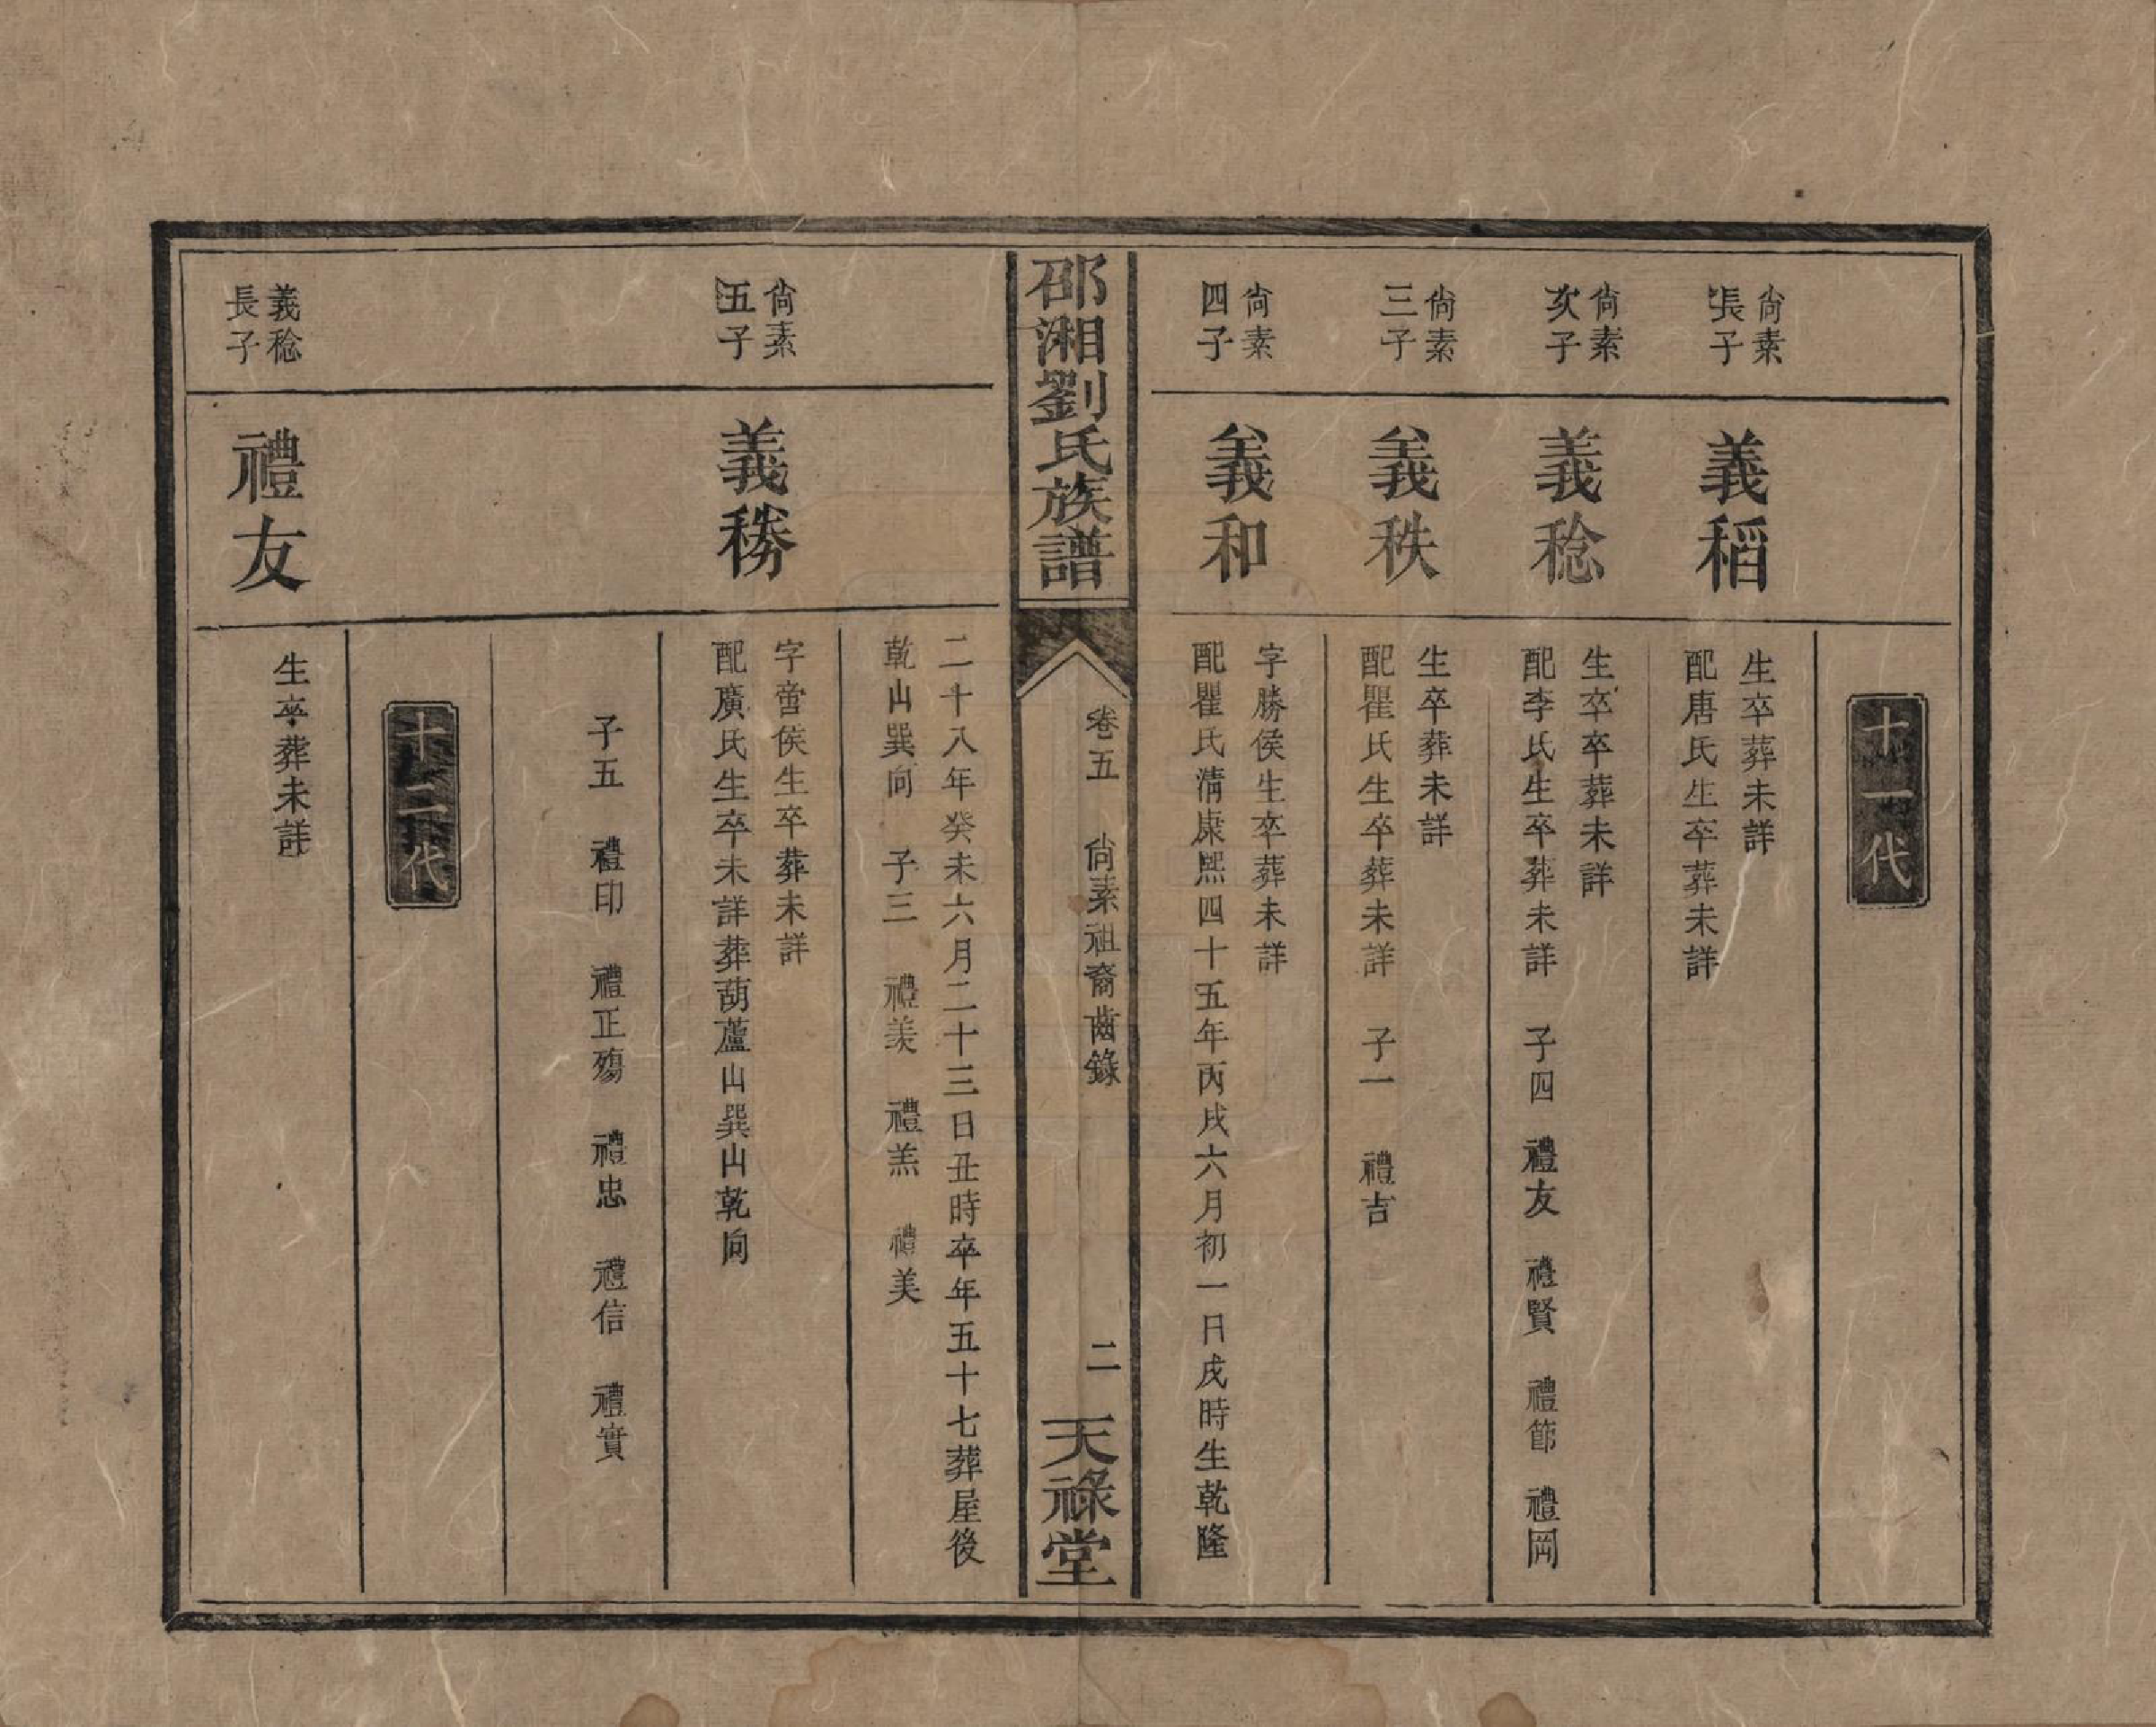 十一代
尙素
張子
義稻
生卒葬未詳
配唐氏生卒葬未詳
尙素
次子
義稔
生卒卒葬未詳
配李氏生卒葬未詳　子四　禮友　禮賢　禮節　禮岡
尙素
三子
義秩
生卒葬未詳
配瞿氏生卒葬未詳　子一　禮吉
尙素
四子
義和
字勝侯生卒葬未詳
配瞿氏淸康熙四十五年丙戌六月初一日戌時生乾隆
邵湘劉氏族譜
卷五　尙素祖裔齒錄
二
天祿堂
二十八年癸未六月二十三日丑時卒年五十七葬屋後
乾山巽向　子三　禮羨　禮羔　禮美
尙素
五子
義𥟑
字啻侯生卒葬未詳
配廣氏生卒未詳葬葫蘆山巽山乾向
子五　禮印　禮正殤　禮忠　禮信　禮實
十二代
義稔
長子
禮友
生卒葬未詳